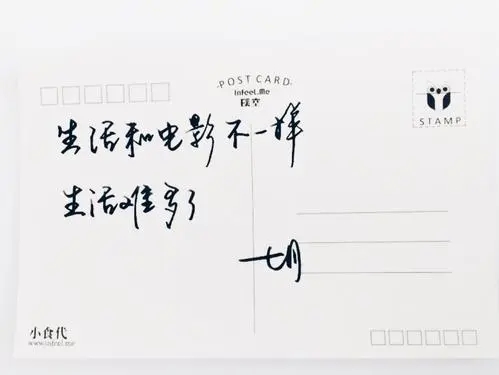 POST CARD
Infeel.Me
STAMP
生活和电影不一样
生活难多了
七月
小食代
www.infeel.me